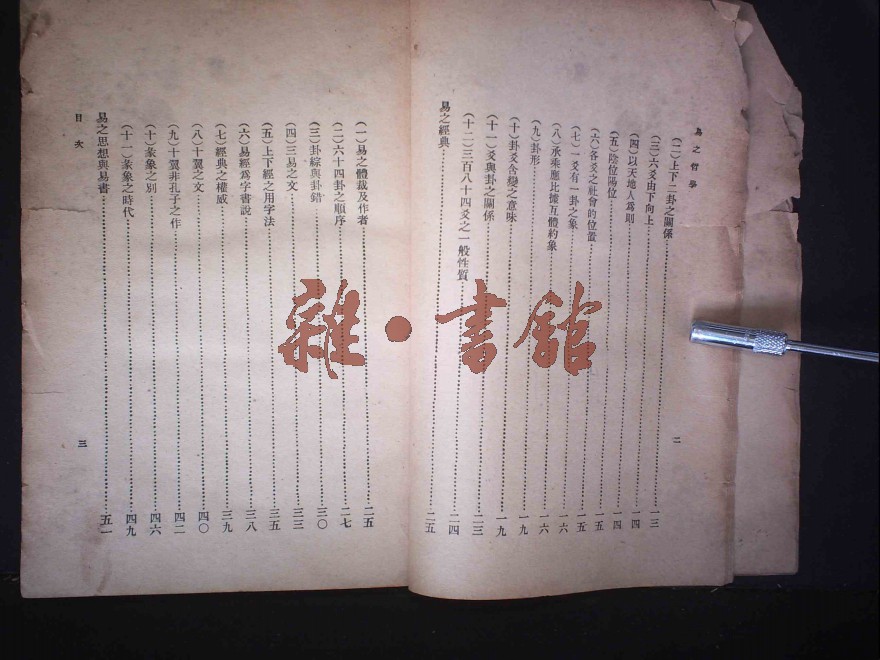 易之哲學
二
(二)上下二卦之關係…一三
(三)六爻由下向上…一四
(四)以天地人爲則…一四
(五)陰位陽位…一四
(六)各爻之社會的位置…一五
(七)一爻有一卦之象…一五
(八)承乘應比據互體約象…一六
(九)卦形…一六
(十)卦爻含變之意味…一九
(十一)爻與卦之關係…二三
(十二)三百八十四爻之一般性質…二四
易之經典…二五
(一)易之體裁及作者…二五
(二)六十四卦之順序…二七
(三)卦綜與卦錯…三〇
(四)三易之文…三三
(五)上下經之用字法…三五
(六)易經爲字書說…三八
(七)經典之權威…三九
(八)十翼之文…四〇
(九)十翼非孔子之作…四二
(十)彖象之別…四六
(十一)彖象之時代…四九
易之思想與易書…五一
目次
三
雜·書館